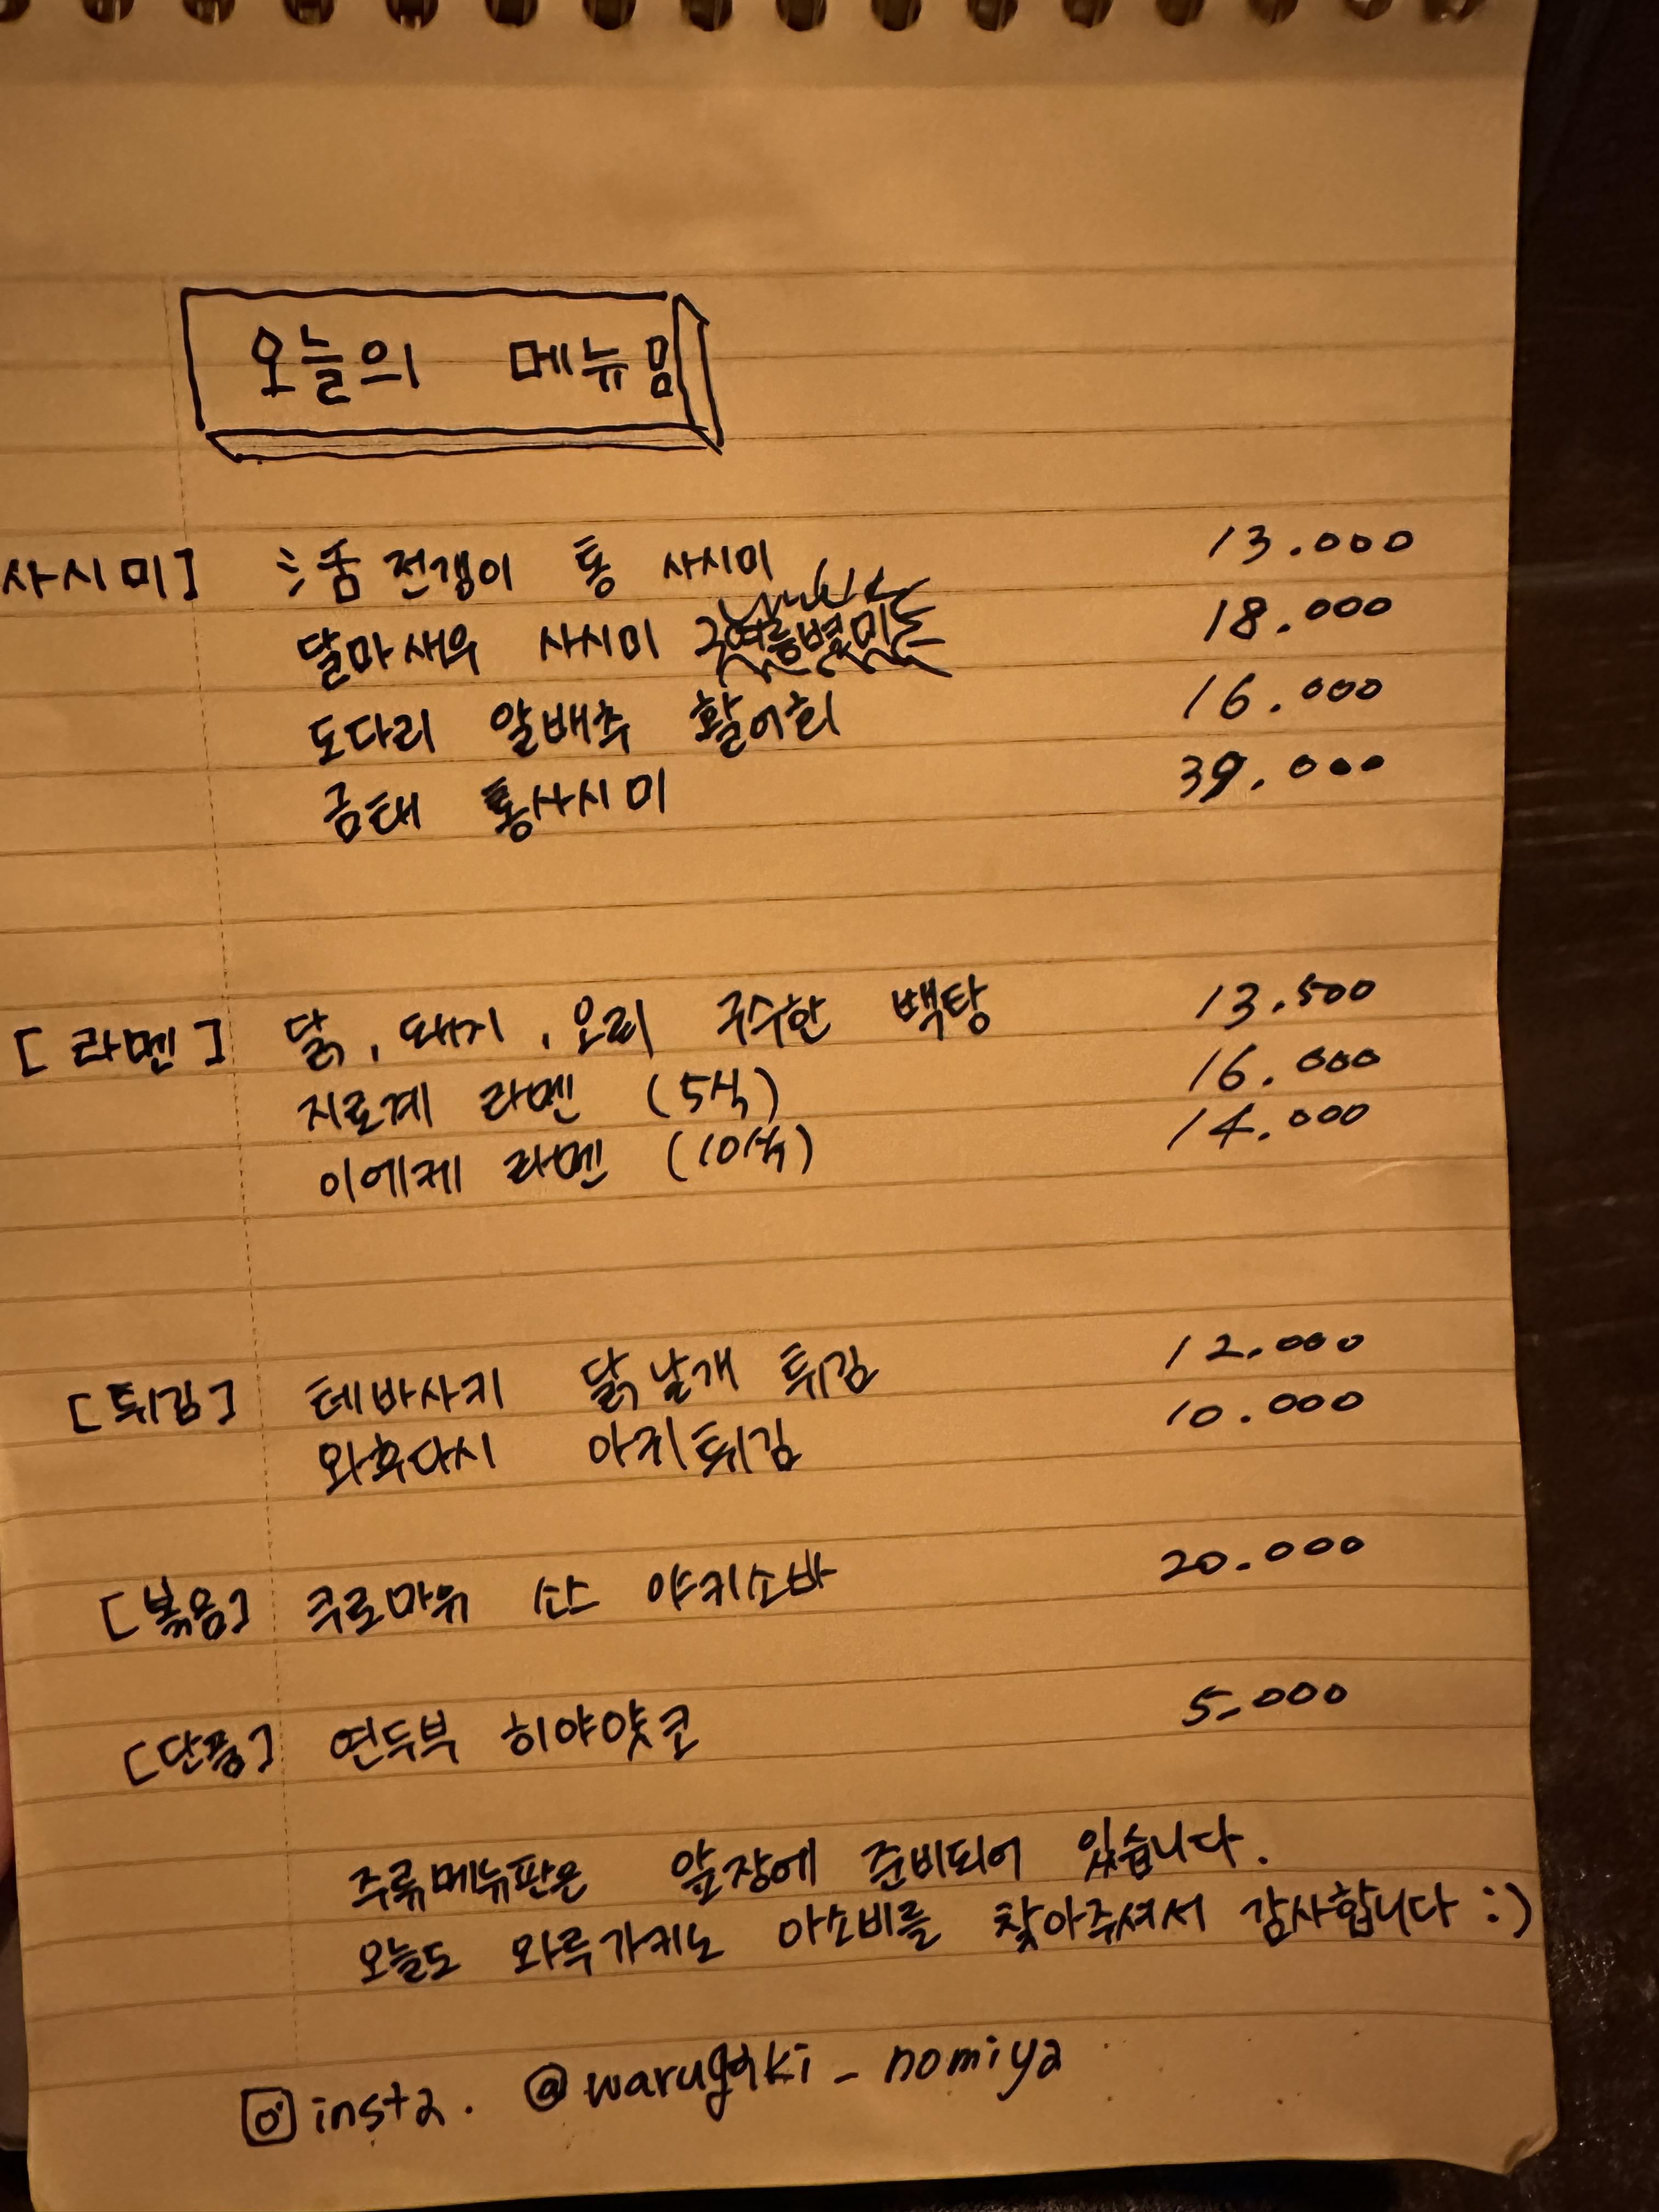 오늘의 메뉴밈
사시미] 活 전갱이 통 사시미 13.000
달마새우 사시미 여름별미 18.000
도다리 알배추 활어회 16.000
금태 통사시미 39.000
[라멘] 닭, 돼지, 오리 구수한 백탕 13.500
지로계 라멘 (5식) 16.000
이에케 라멘 (10식) 14.000
[튀김] 테바사키 닭날개 튀김 12.000
와후다시 아키튀김 10.000
[볶음] 쿠로마유 소스 야키소바 20.000
[단품] 연두부 히야얏코 5.000
주류메뉴판은 앞장에 준비되어 있습니다.
오늘도 와루가키노 아소비를 찾아주셔서 감사합니다 :)
insta. @warugaki_nomiya